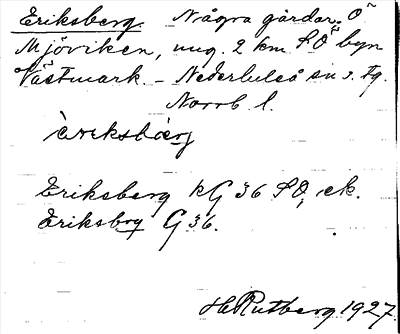 Eriksberg. Några gårdar. O
Mjöviken, ung. 2 km SO byn
Västmark – Nederluleå sn o. tg.
Norrb l.
Eriksberg kG 36 SO, ek.
Eriksbrg G 36.
H Rutberg 1927.